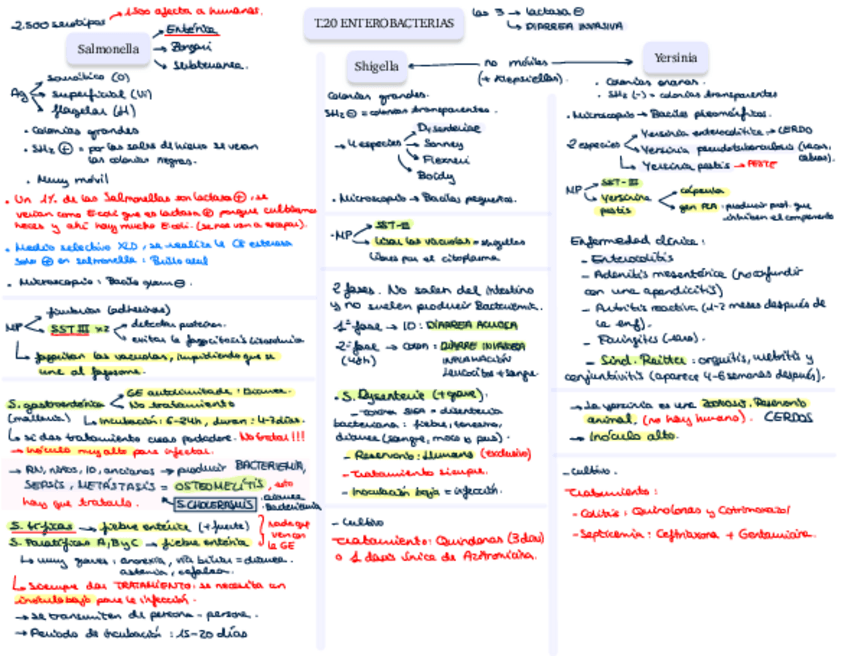 T.20 ENTEROBACTERIAS
las 3 → lactosa ⊖
↳ DIARREA INVASIVA
2.500 serotipos → 1500 afecta a humanos.
Salmonella
→ Entérica
→ Bongori
→ Subterranea.
Ag
somático (O)
superficial (Vi)
flagelar (H)
• Colonias grandes
• SH2 ⊕ = por las sales de hierro se veran
las colonias negras.
• Muy móvil
• Un 1% de las Salmonellas son lactosa ⊕, se
verian como E.coli que es lactosa ⊕ porque cultivamos
heces y ahí hay mucho E.coli. (se nos van a escapar).
• Medio selectivo XLD, se realiza la C8 esterasa
solo ⊕ en salmonella : Brillo azul
• Microscopio : Bacilo gram ⊖.
MP
→ fimbrias (adhesinas)
→ SST III x2
→ detectar proteinas.
→ evitar la fagocitosis lisosomica
↳ fagocitan las vacuolas, impidiendo que se
une al fagosoma.
S. gastroentérica
GE autolimitada : Diarrea.
No tratamiento
(mallorca)
↳ Incubación: 6-24h, duran: 4-7 días.
↳ si das tratamiento creas portador. No tratar!!!
→ inóculo muy alto para infectar.
→ RN, niños, ID, ancianos → producir BACTERIEMIA,
SEPSIS, METÁSTASIS = OSTEOMELITIS, esto
hay que tratarlo.
S.CHOLERASUIS
: diarrea
• Bacteriemia
S. tíficas → fiebre entérica (+ fuerte)
S. Paratíficas A, B y C → fiebre entérica
nada que
ver con
la GE
↳ muy graves : anorexia, vía biliar = diarrea.
astenia, cefalea.
↳ Siempre dar TRATAMIENTO: se necesita un
inóculo bajo para la infección.
→ Se transmiten de persona - persona.
→ Periodo de incubación : 15-20 días
Shigella
no móviles
(+ Klepsiellas).
Colonias grandes.
SH2 ⊖ = colonias transparentes.
→ 4 especies
Dysenteriae
Sonney
Flexneri
Boidy
• Microscopio → Bacilos pequeños.
- MP
SST-III
Lisar las vacuolas = shigellas
libres por el citoplasma
2 fases. No salen del intestino
y no suelen producir Bacteriemia.
1ª fase → ID : DIARREA ACUOSA
2ª fase → COLON : DIARRE INVASIVA
(48h)
INFLAMACIÓN
Leucocitos + sangre.
• S. Dysenteriae (+ grave).
- toxina SIGA = disenteria
bacteriana : fiebre, tenesmo,
diarrea (sangre, moco o pus).
- Reservorio : Humano (exclusivo)
- Tratamiento siempre.
- Inoculación baja = infección.
- Cultivo
Tratamiento: Quinolonas (3 días)
o 1 dosis única de Azitromicina.
Yersinia
• Colonias enanas.
• SH2 (-) = colonias transparentes
• Microscopio → Bacilos pleomórficos.
2 especies
Yersinia enterocolitica → CERDO
Yersinia pseudotuberculosis (vacas, cabras).
↳ Yersinia pestis → PESTE
MP
SST-III
Yersinia
pestis
cápsula
gen PLA : producir prot. que
inhiben el componente
Enfermedad clínica :
- Enterocolitis
- Adenitis mesentérica (no confundir
con una apendicitis)
- Artritis reactiva (1-2 meses después de
la enf).
- Faringitis (raro).
- Sínd. Reiter : orquitis, uretritis y
conjuntivitis (aparece 4-6 semanas después).
→ La yersinia es una zoonosis. Reservorio
animal, (no hay humano). CERDOS
→ Inóculo alto.
- Cultivo.
Tratamiento :
- Colitis : Quinolonas y Cotrimoxazol
- Septicemia : Ceftriaxona + Gentamicina.